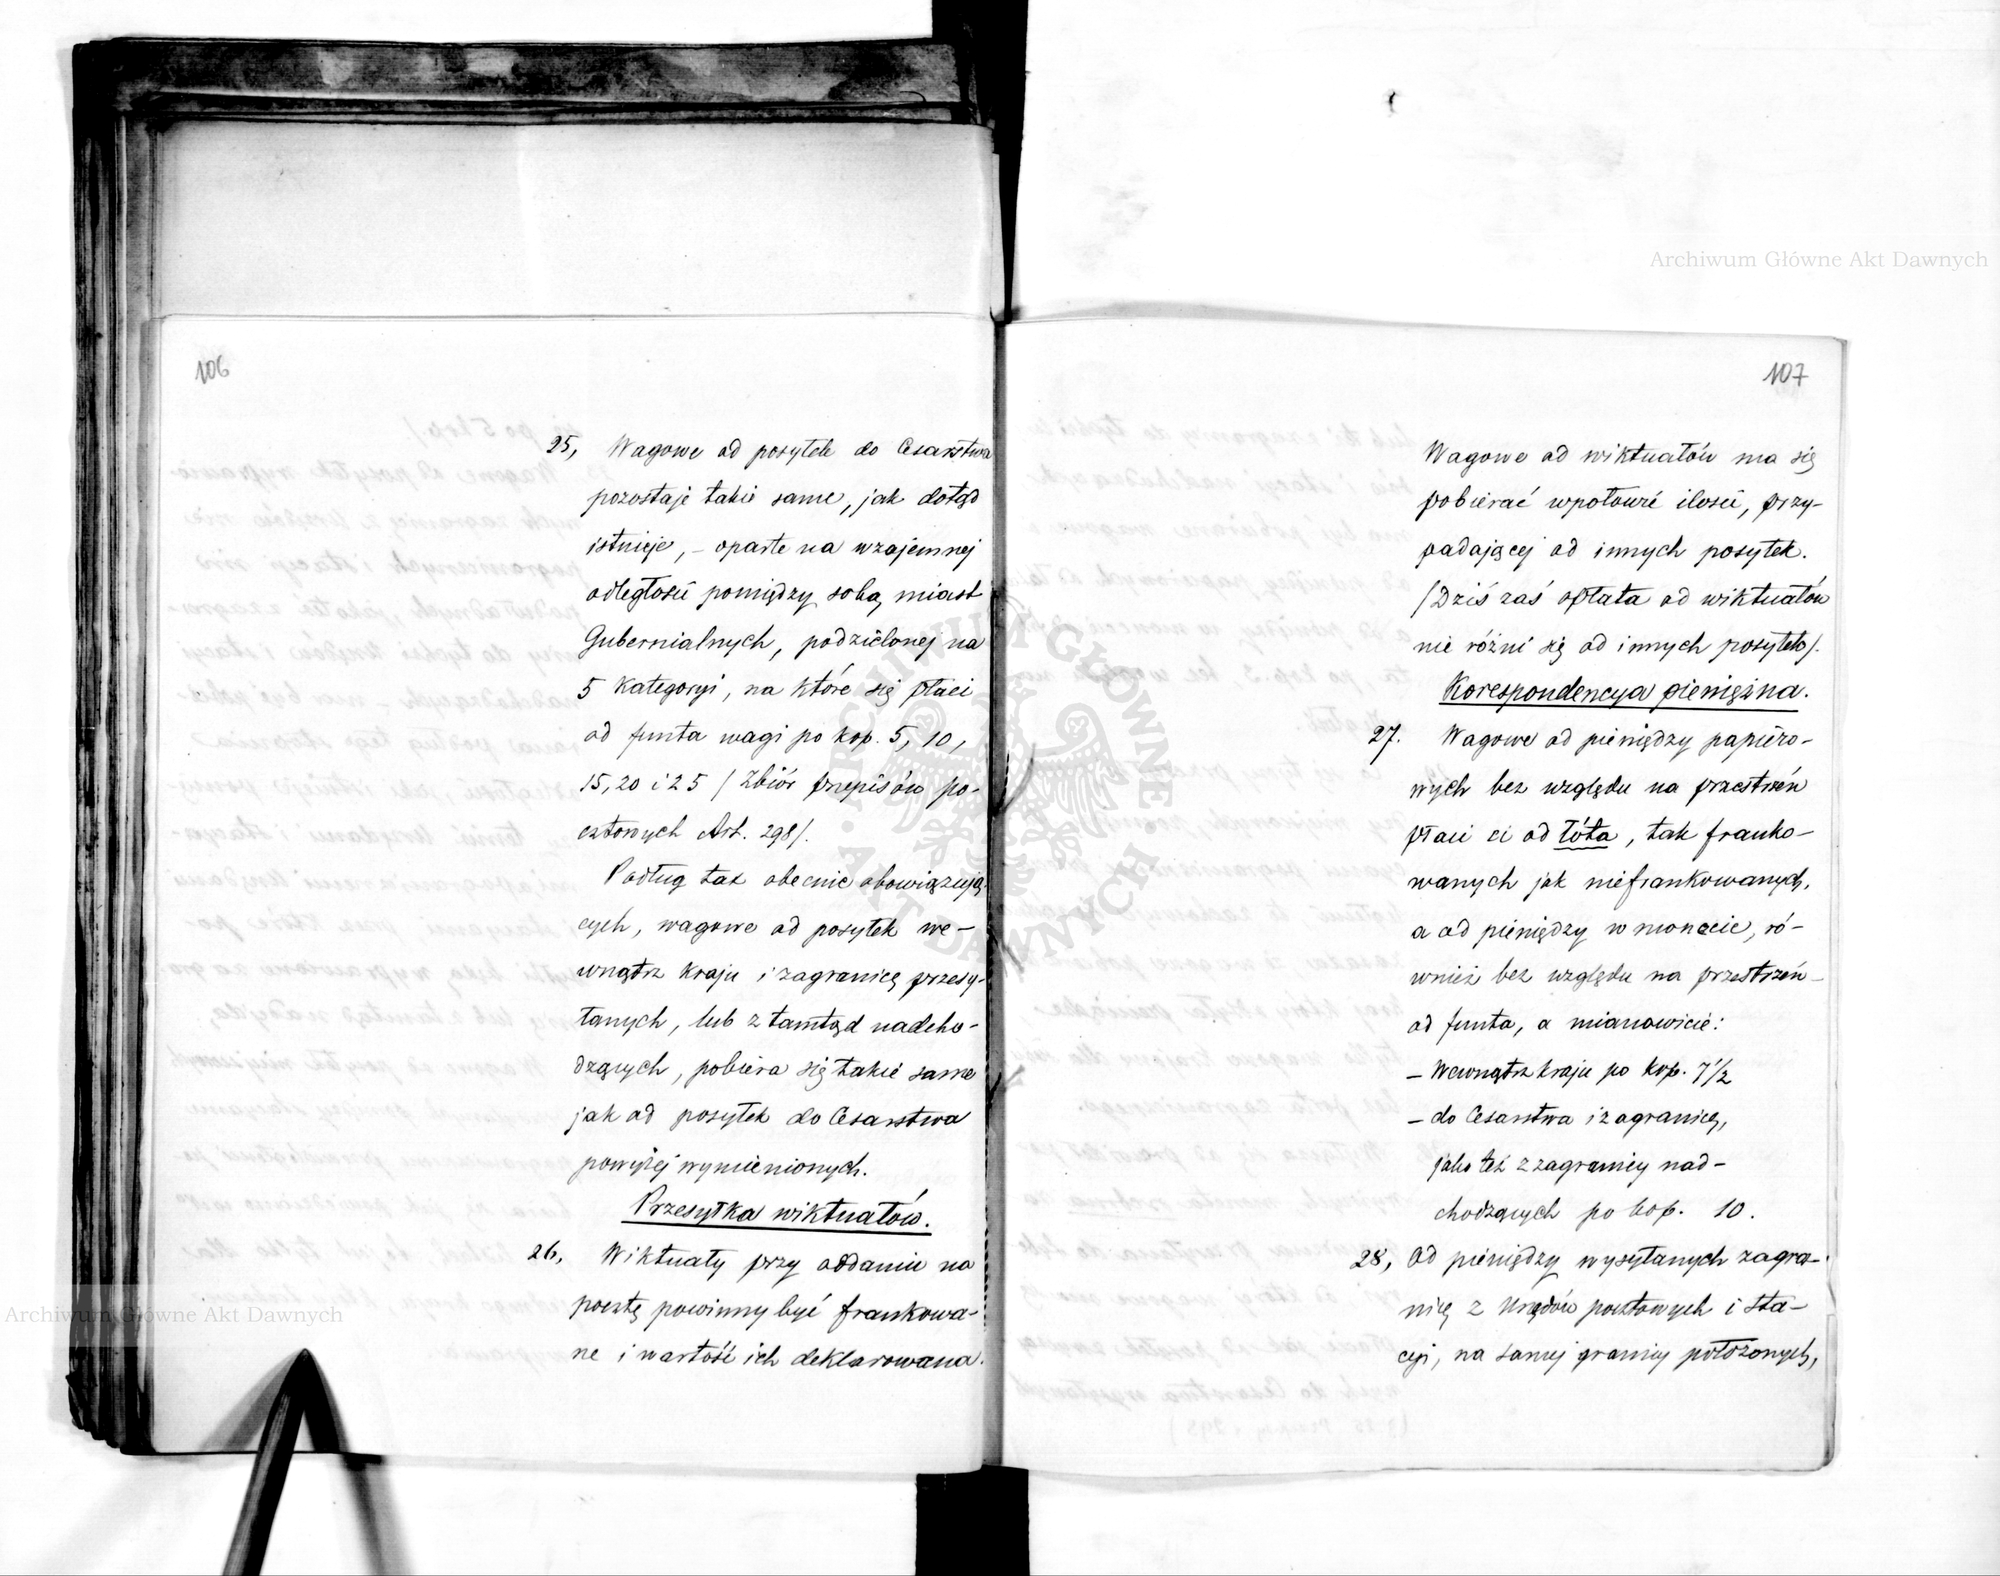 106
25, Wagowe od posyłek do Cesarstwa
pozostaje takie same, jak dotąd
istnieje, – oparte na wzajemnej
odległości pomiędzy sobą miast
Gubernialnych, podzielonej na
5 kategoryi, na które się płaci
od funta wagi po kop. 5, 10,
15, 20 i 25 / Zbiór przepisów po-
cztowych Art. 298/.
Podług tax obecnie obowiązują-
cych, wagowe od posyłek we-
wnątrz kraju i zagranicę przesy-
łanych, lub z tamtąd nadcho-
dzących, pobiera się takie same
jak od posyłek do Cesarstwa
powyżej wymienionych.
Przesyłka wiktuałów.
26, Wiktuały przy oddaniu na
pocztę powinny być frankowa-
ne i wartość ich deklarowana.
107
Wagowe od wiktuałów ma się
pobierać wpołowie ilości, przy-
padającej od innych posyłek.
/Dziś zaś opłata od wiktuałów
nie różni się od innych posyłek/.
Korespondencya pieniężna.
27. Wagowe od pieniędzy papiero-
wych bez względu na przestrzeń
płaci się od łóta, tak franko-
wanych jak niefrankowanych,
a od pieniędzy w monecie, ró-
wnież bez względu na przestrzeń –
od funta, a mianowicie:
– Wewnątrz kraju po kop. 7½
– do Cesarstwa i zagranicę,
jako też z zagranicy nad-
chodzących po kop. 10.
28, Od pieniędzy wysyłanych zagra-
nicę z Urzędów pocztowych i Sta-
cyi, na samej granicy położonych,
Archiwum Główne Akt Dawnych
Archiwum Główne Akt Dawnych
ARCHIWUM GŁÓWNE · AKT DAWNYCH ·